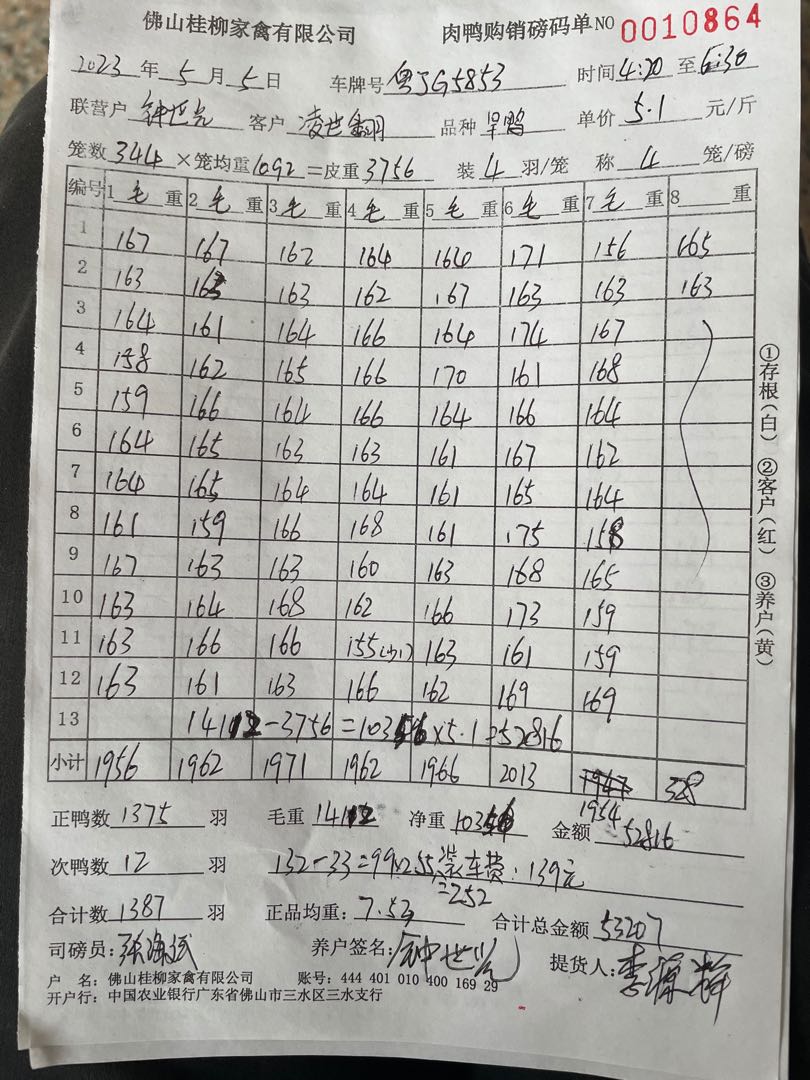 佛山桂柳家禽有限公司 肉鸭购销磅码单 NO 0010864
2023 年 5 月 5 日 车牌号 粤JG5853 时间 4:20 至 6:30
联营户 钟世光 客户 凌世翻 品种 旱鸭 单价 5.1 元/斤
笼数 344 ×笼均重 1092 =皮重 3756 装 4 羽/笼 称 4 笼/磅
编号 1 毛 重 2 毛 重 3 毛 重 4 毛 重 5 毛 重 6 毛 重 7 毛 重 8 重
1 167 167 162 164 164 171 156 165
2 163 163 163 162 167 163 163 163
3 164 161 164 166 164 174 167
4 158 162 165 166 170 161 168
5 159 166 164 166 164 166 164
6 164 165 163 163 161 167 162
7 164 165 164 164 161 165 164
8 161 159 166 168 161 175 158
9 167 163 163 160 163 168 165
10 163 164 168 162 166 173 159
11 163 166 166 155(少1) 163 161 159
12 163 161 163 166 162 169 169
13 14112-3756=10356×5.1=52816
小计 1956 1962 1971 1962 1966 2013 1947 328
1954
正鸭数 1375 羽 毛重 14112 净重 10356 金额 52816
次鸭数 12 羽 132-33=99×2.55 装车费:139元
=252
合计数 1387 羽 正品均重: 7.53 合计总金额 53207
司磅员: 养户签名: 钟世光 提货人:
户 名: 佛山桂柳家禽有限公司 账号: 444 401 010 400 169 29
开户行: 中国农业银行广东省佛山市三水区三水支行
①存根(白) ②客户(红) ③养户(黄)